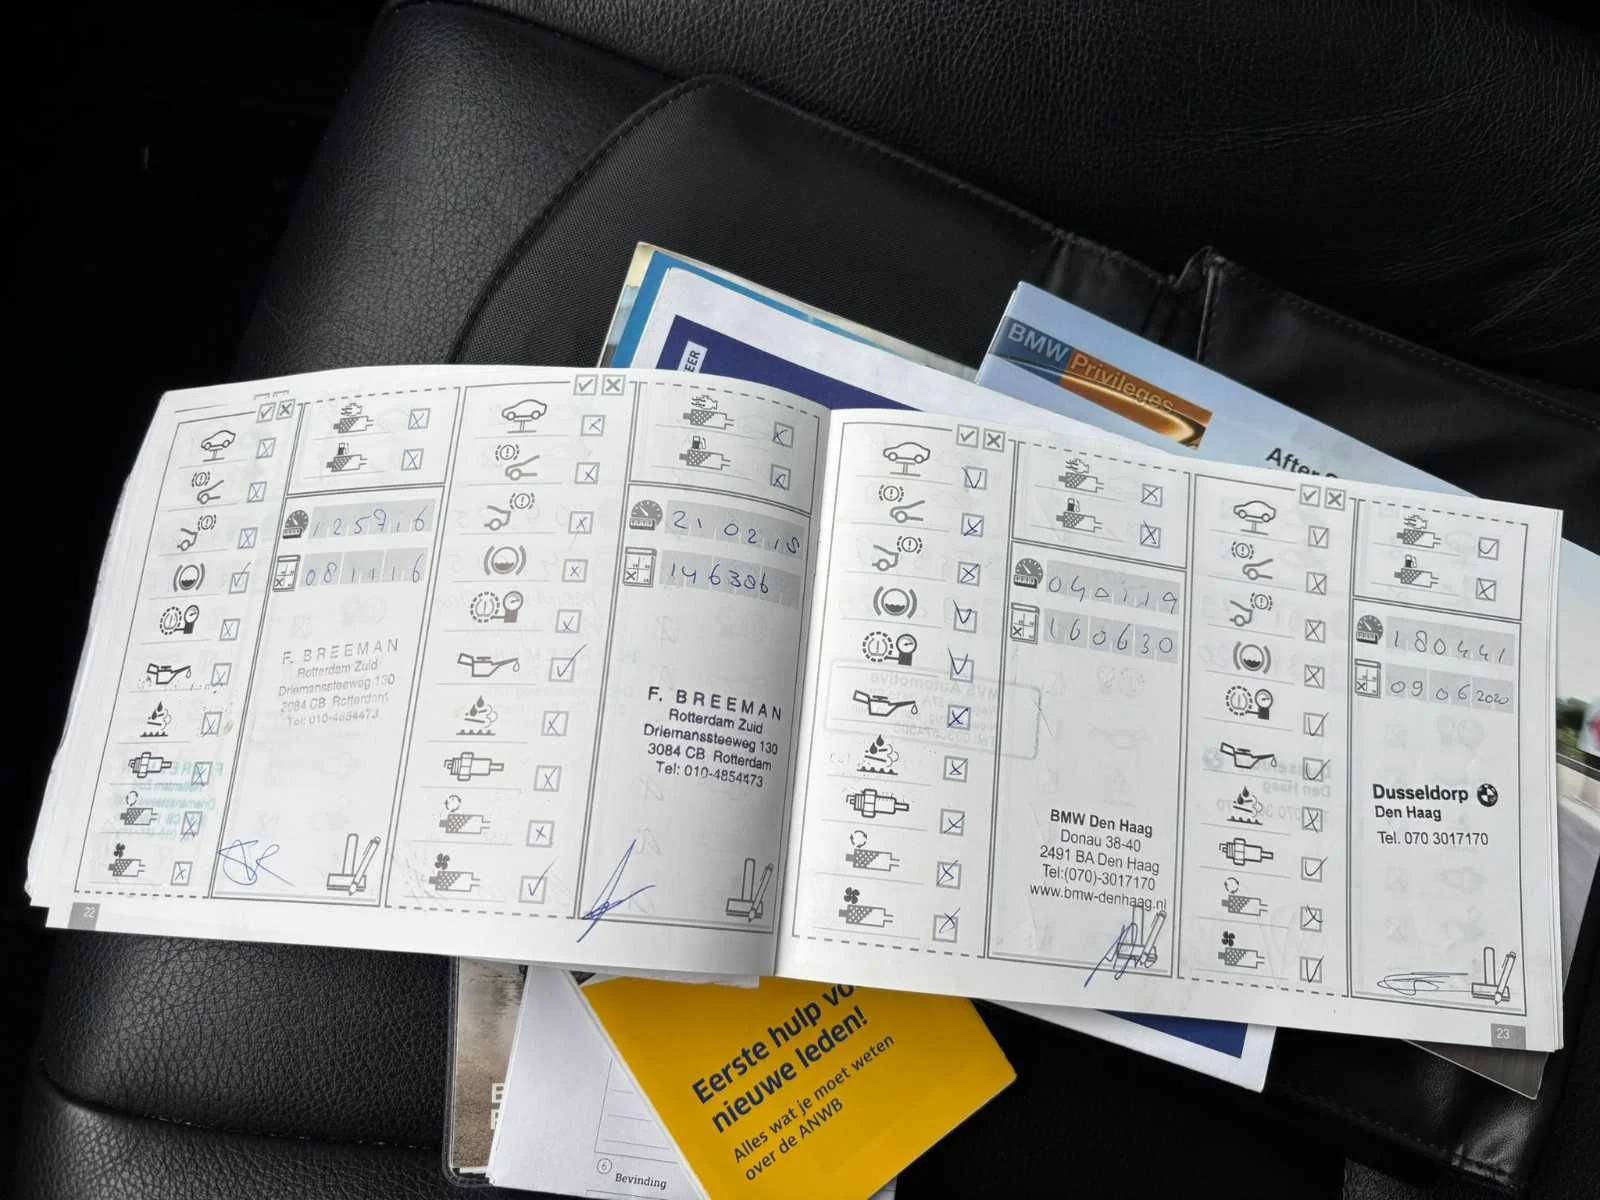 EER
BMW Privileges
After S
125716
081116
F. BREEMAN
Rotterdam Zuid
Driemanssteeweg 130
3084 CB Rotterdam
Tel: 010-4854473
22
21 02 18
146386
F. BREEMAN
Rotterdam Zuid
Driemanssteeweg 130
3084 CB Rotterdam
Tel: 010-4854473
040119
160630
BMW Den Haag
Donau 38-40
2491 BA Den Haag
Tel:(070)-3017170
www.bmw-denhaag.nl
180441
09 06 2020
Dusseldorp
Den Haag
Tel. 070 3017170
23
Eerste hulp vo
nieuwe leden!
Alles wat je moet weten
over de ANWB
6
Bevinding